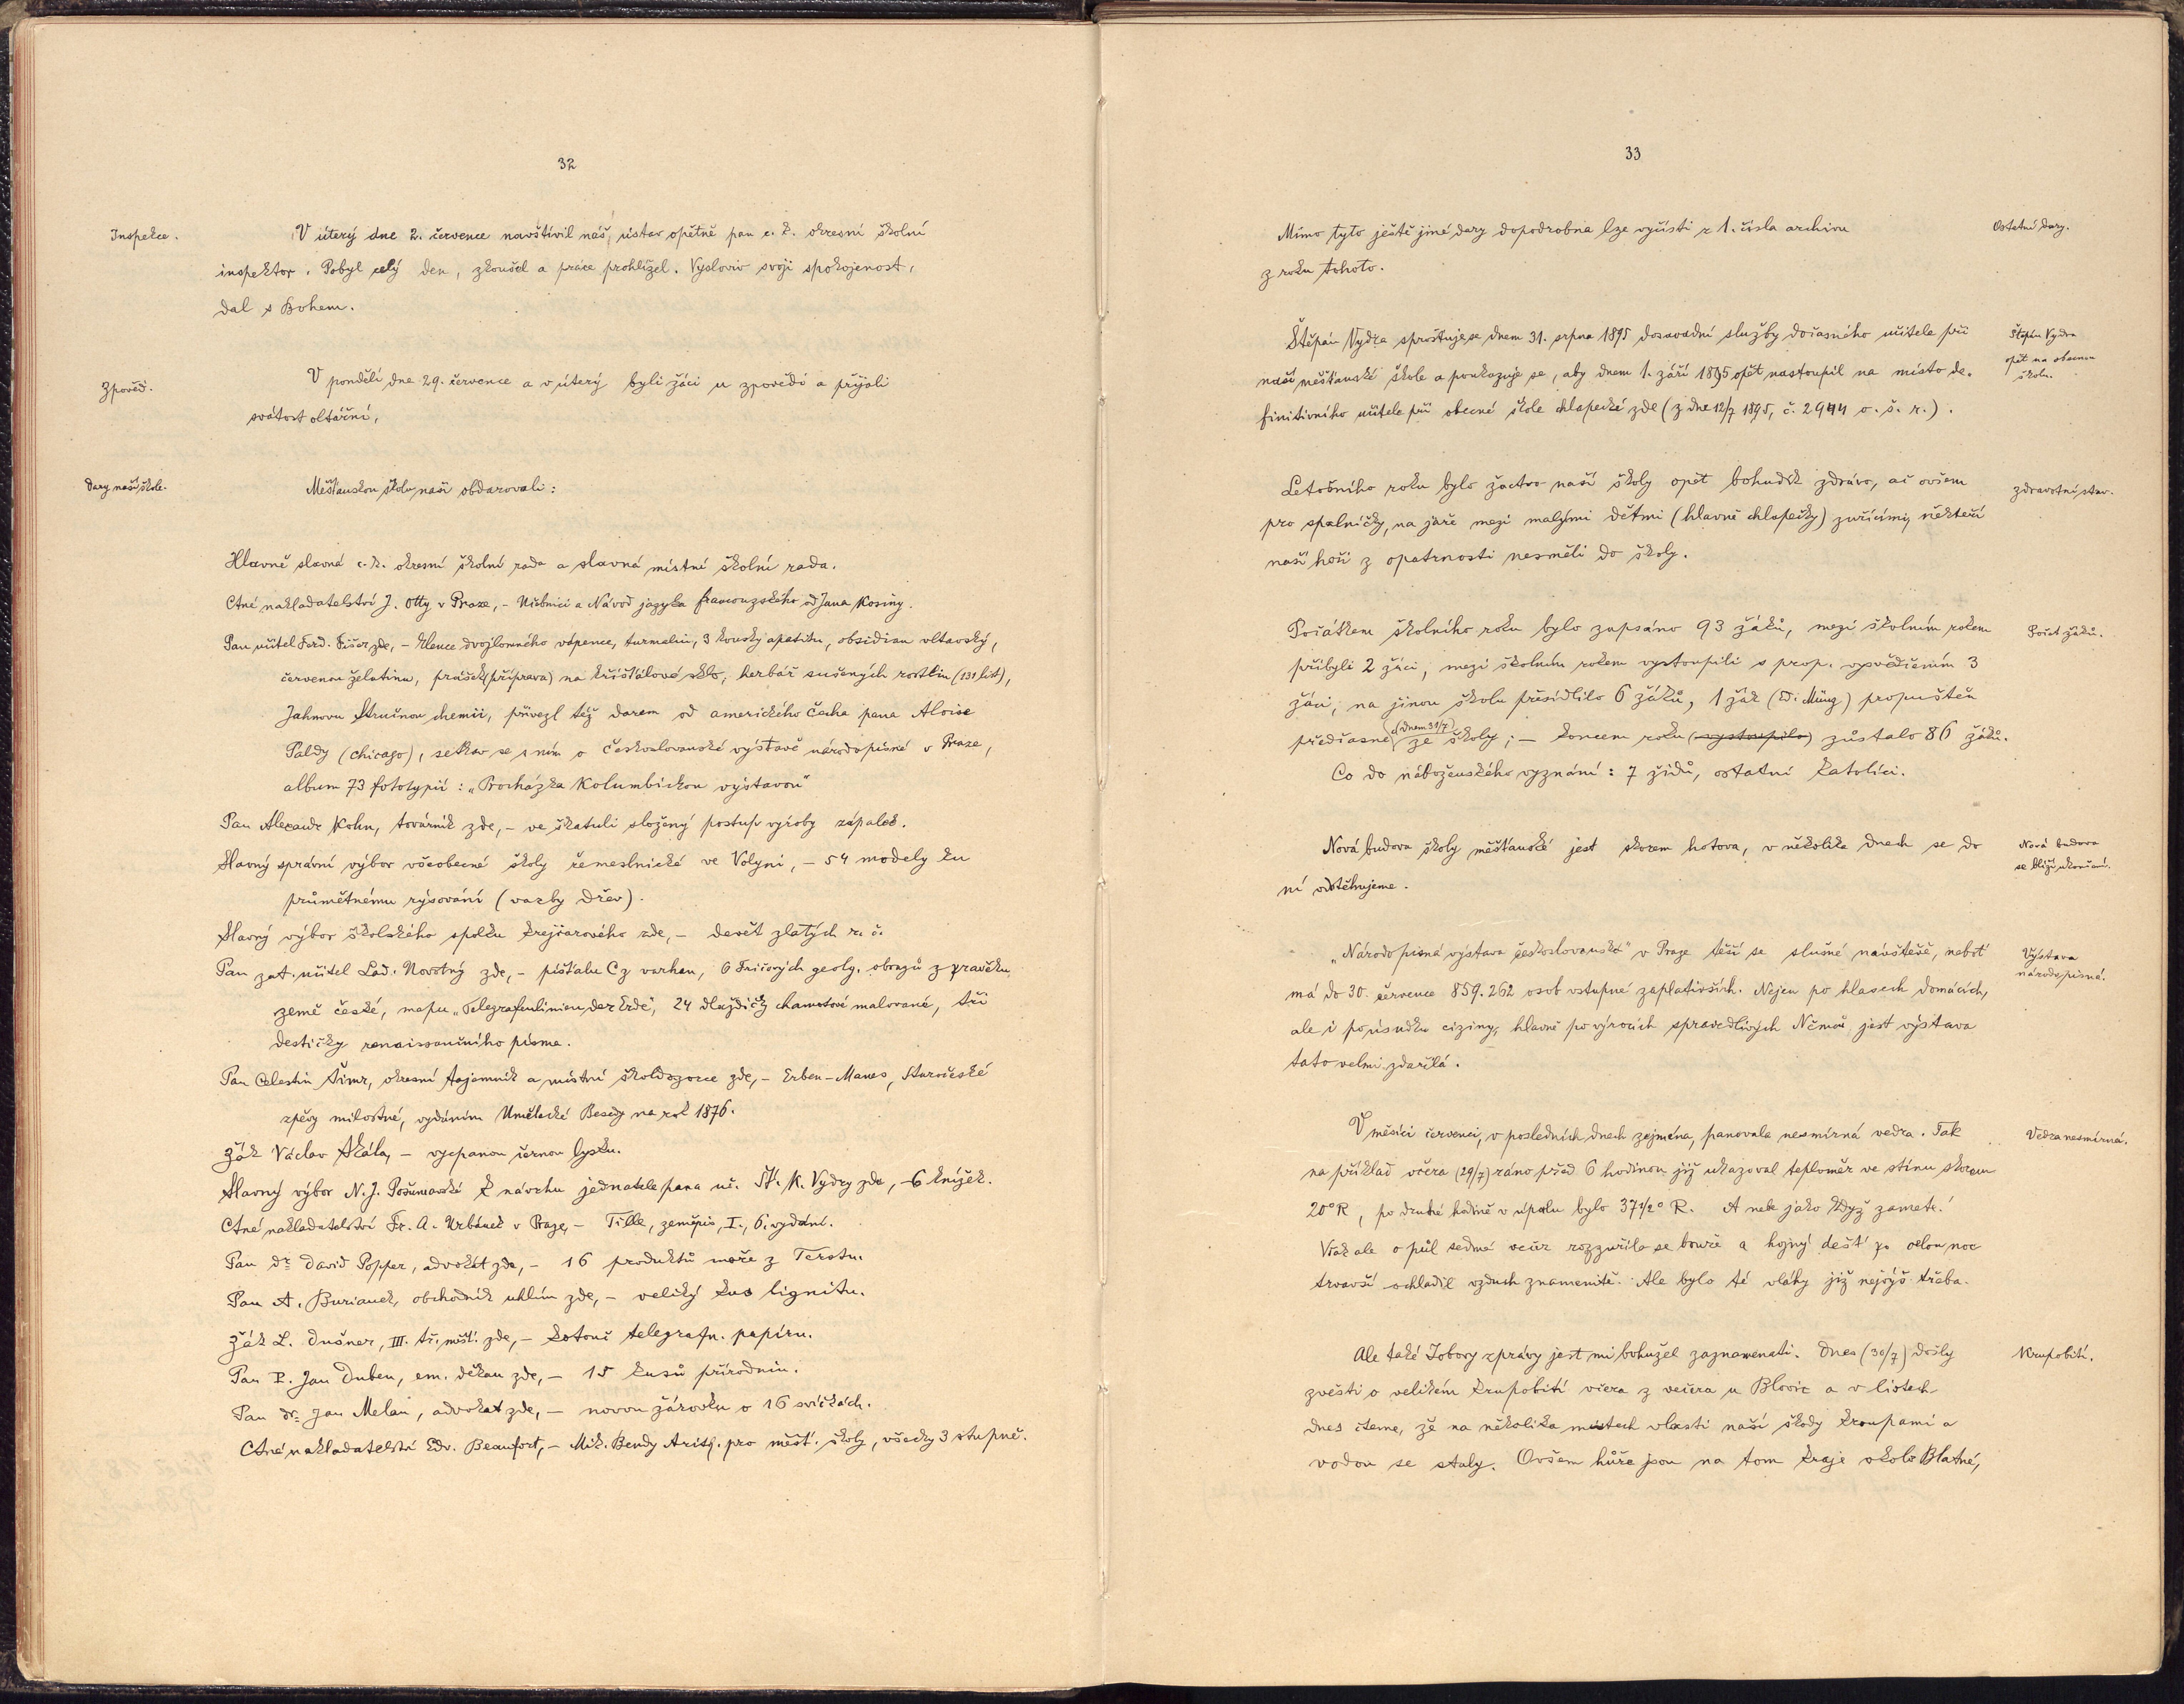 32
Inspekce.
V úterý dne 2. července navštívil náš ústav opětně pan c. k. okresní školní
inspektor. Pobyl celý den, zkoušel a práce prohlížel. Vysloviv svoji spokojenost,
dal s Bohem.
Zpověď.
V pondělí dne 29. července a v úterý byli žáci u zpovědi a přijali
svátost oltářní.
Dary naší škole.
Měšťanskou školu naši obdarovali:
Hlavně slavná c. k. okresní školní rada a slavná místní školní rada.
Ctné nakladatelství J. Otty v Praze, – Učebnici a Návod jazyka francouzského od Jana Kosiny.
Pan učitel Ferd. Fišer zde, – klence dvojlomného vápence, turmalin, 3 kousky apatitu, obsidian vltavský,
červenou želatinu, prášek (příprava) na křišťálové sklo, herbář sušených rostlin (131 list),
Jahnovu Stručnou chemii, přivezl též darem od amerického Čecha pana Aloise
Paldy (Chicago), setkav se s ním o českoslovanské výstavě národopisné v Praze,
album 73 fototypií: „Procházka Kolumbickou výstavou"
Pan Alexandr Kohn, továrník zde, – ve škatuli složený postup výroby zápalek.
Slavný správní výbor všeobecné školy řemeslnické ve Volyni, – 54 modely ku
průmětnému rýsování (vazby dřev).
Slavný výbor školského spolku krejcarového zde, – devět zlatých r. č.
Pan zat. učitel Lad. Novotný zde, – píšťalu C z varhan, 6 Fričových geolg. obrazů z pravěku
země české, mapu „Telegrafenlinien der Erde", 24 dlaždičky chamotové malované, tři
destičky renaissančního písma.
Pan Celestin Šimr, okresní tajemník a místní školdozorce zde, – Erben-Manes, Staročeské
zpěvy milostné, vydáním Umělecké Besedy na rok 1876.
Žák Václav Skála, – vycpanou černou lysku.
Slavný výbor N. J. Pošumavské k návrhu jednatele pana uč. Št. K. Vydry zde, – 6 knížek.
Ctné nakladatelství Fr. A. Urbánek v Praze, – Tille, zeměpis, I., 6. vydání.
Pan Dr. David Popper, advokát zde, – 16 produktů moře z Terstu.
Pan A. Burianek, obchodník uhlím zde, – veliký kus lignitu.
Žák L. Dušner, III. tř. měšť. zde, – kotouč telegrafn. papíru.
Pan P. Jan Duben, em. děkan zde, – 15 kusů přírodnin.
Pan Dr. Jan Melan, advokat zde, – novou žárovku o 16 svíčkách.
Ctné nakladatelství Edv. Beaufort, – Mik. Bendy Aritg. pro měšť. školy, všecky 3 stupně.
33
Mimo tyto ještě jiné dary dopodrobna lze vyčísti z 1. čísla archivu
z roku tohoto.
Ostatní dary.
Štěpán Vydra sprošťuje se dnem 31. srpna 1895 dosavadní služby dočasného učitele při
naší měšťanské škole a poukazuje se, aby dnem 1. září 1895 opět nastoupil na místo de-
finitivního učitele při obecné škole chlapecké zde (z dne 12/7 1895, č. 2944 o. š. r.).
Štěpán Vydra
opět na obecnou
školu.
Letošního roku bylo žactvo naší školy opět bohudík zdrávo, ač ovšem
pro spalničky, na jaře mezi malými dětmi (hlavně chlapečky) zuřícími, někteří
naši hoši z opatrnosti nesměli do školy.
Zdravotní stav.
Počátkem školního roku bylo zapsáno 93 žáků, mezi školním rokem
přibyli 2 žáci, mezi školním rokem vystoupili s prop. vysvědčením 3
žáci, na jinou školu přesídlilo 6 žáků, 1 žák (Edi. Münz) propuštěn
předčasně (dnem 31/7) ze školy; – koncem roku (vystoupilo) zůstalo 86 žáků.
Co do náboženského vyznání: 7 židů, ostatní katolíci.
Počet žáků.
Nová budova školy měšťanské jest skorem hotova, v několika dnech se do
ní odstěhujeme.
Nová budova
se blíží ukončení.
„Národopisná výstava českoslovanská" v Praze těší se slušné návštěvě, neboť
má do 30. července 859.262 osob vstupné zaplativších. Nejen po hlasech domácích,
ale i po úsudku ciziny, hlavně po výrocích spravedlivých Němců, jest výstava
tato velmi zdařilá.
Výstava
národopisná.
V měsíci červenci, v posledních dnech zejména, panovala nesmírná vedra. Tak
na příklad včera (29/7) ráno před 6 hodinou již ukazoval teploměr ve stínu skorem
20° R, po druhé hodině v úpalu bylo 37 1/2° R. A nebe jako když zamete!
Však ale o půl sedmé večer rozzuřila se bouře a hojný dešť po celou noc
trvavší ochladil vzduch znamenitě. Ale bylo té vláhy již nejvýš třeba.
Vedra nesmírná.
Ale také Jobovy zprávy jest mi bohužel zaznamenati. Dnes (30/7) došly
zvěsti o velikém krupobití včera z večera u Blovic a v listech
dnes čteme, že na několika místech vlasti naší škody kroupami a
vodou se staly. Ovšem hůře jsou na tom kraje okolo Blatné,
Krupobití.